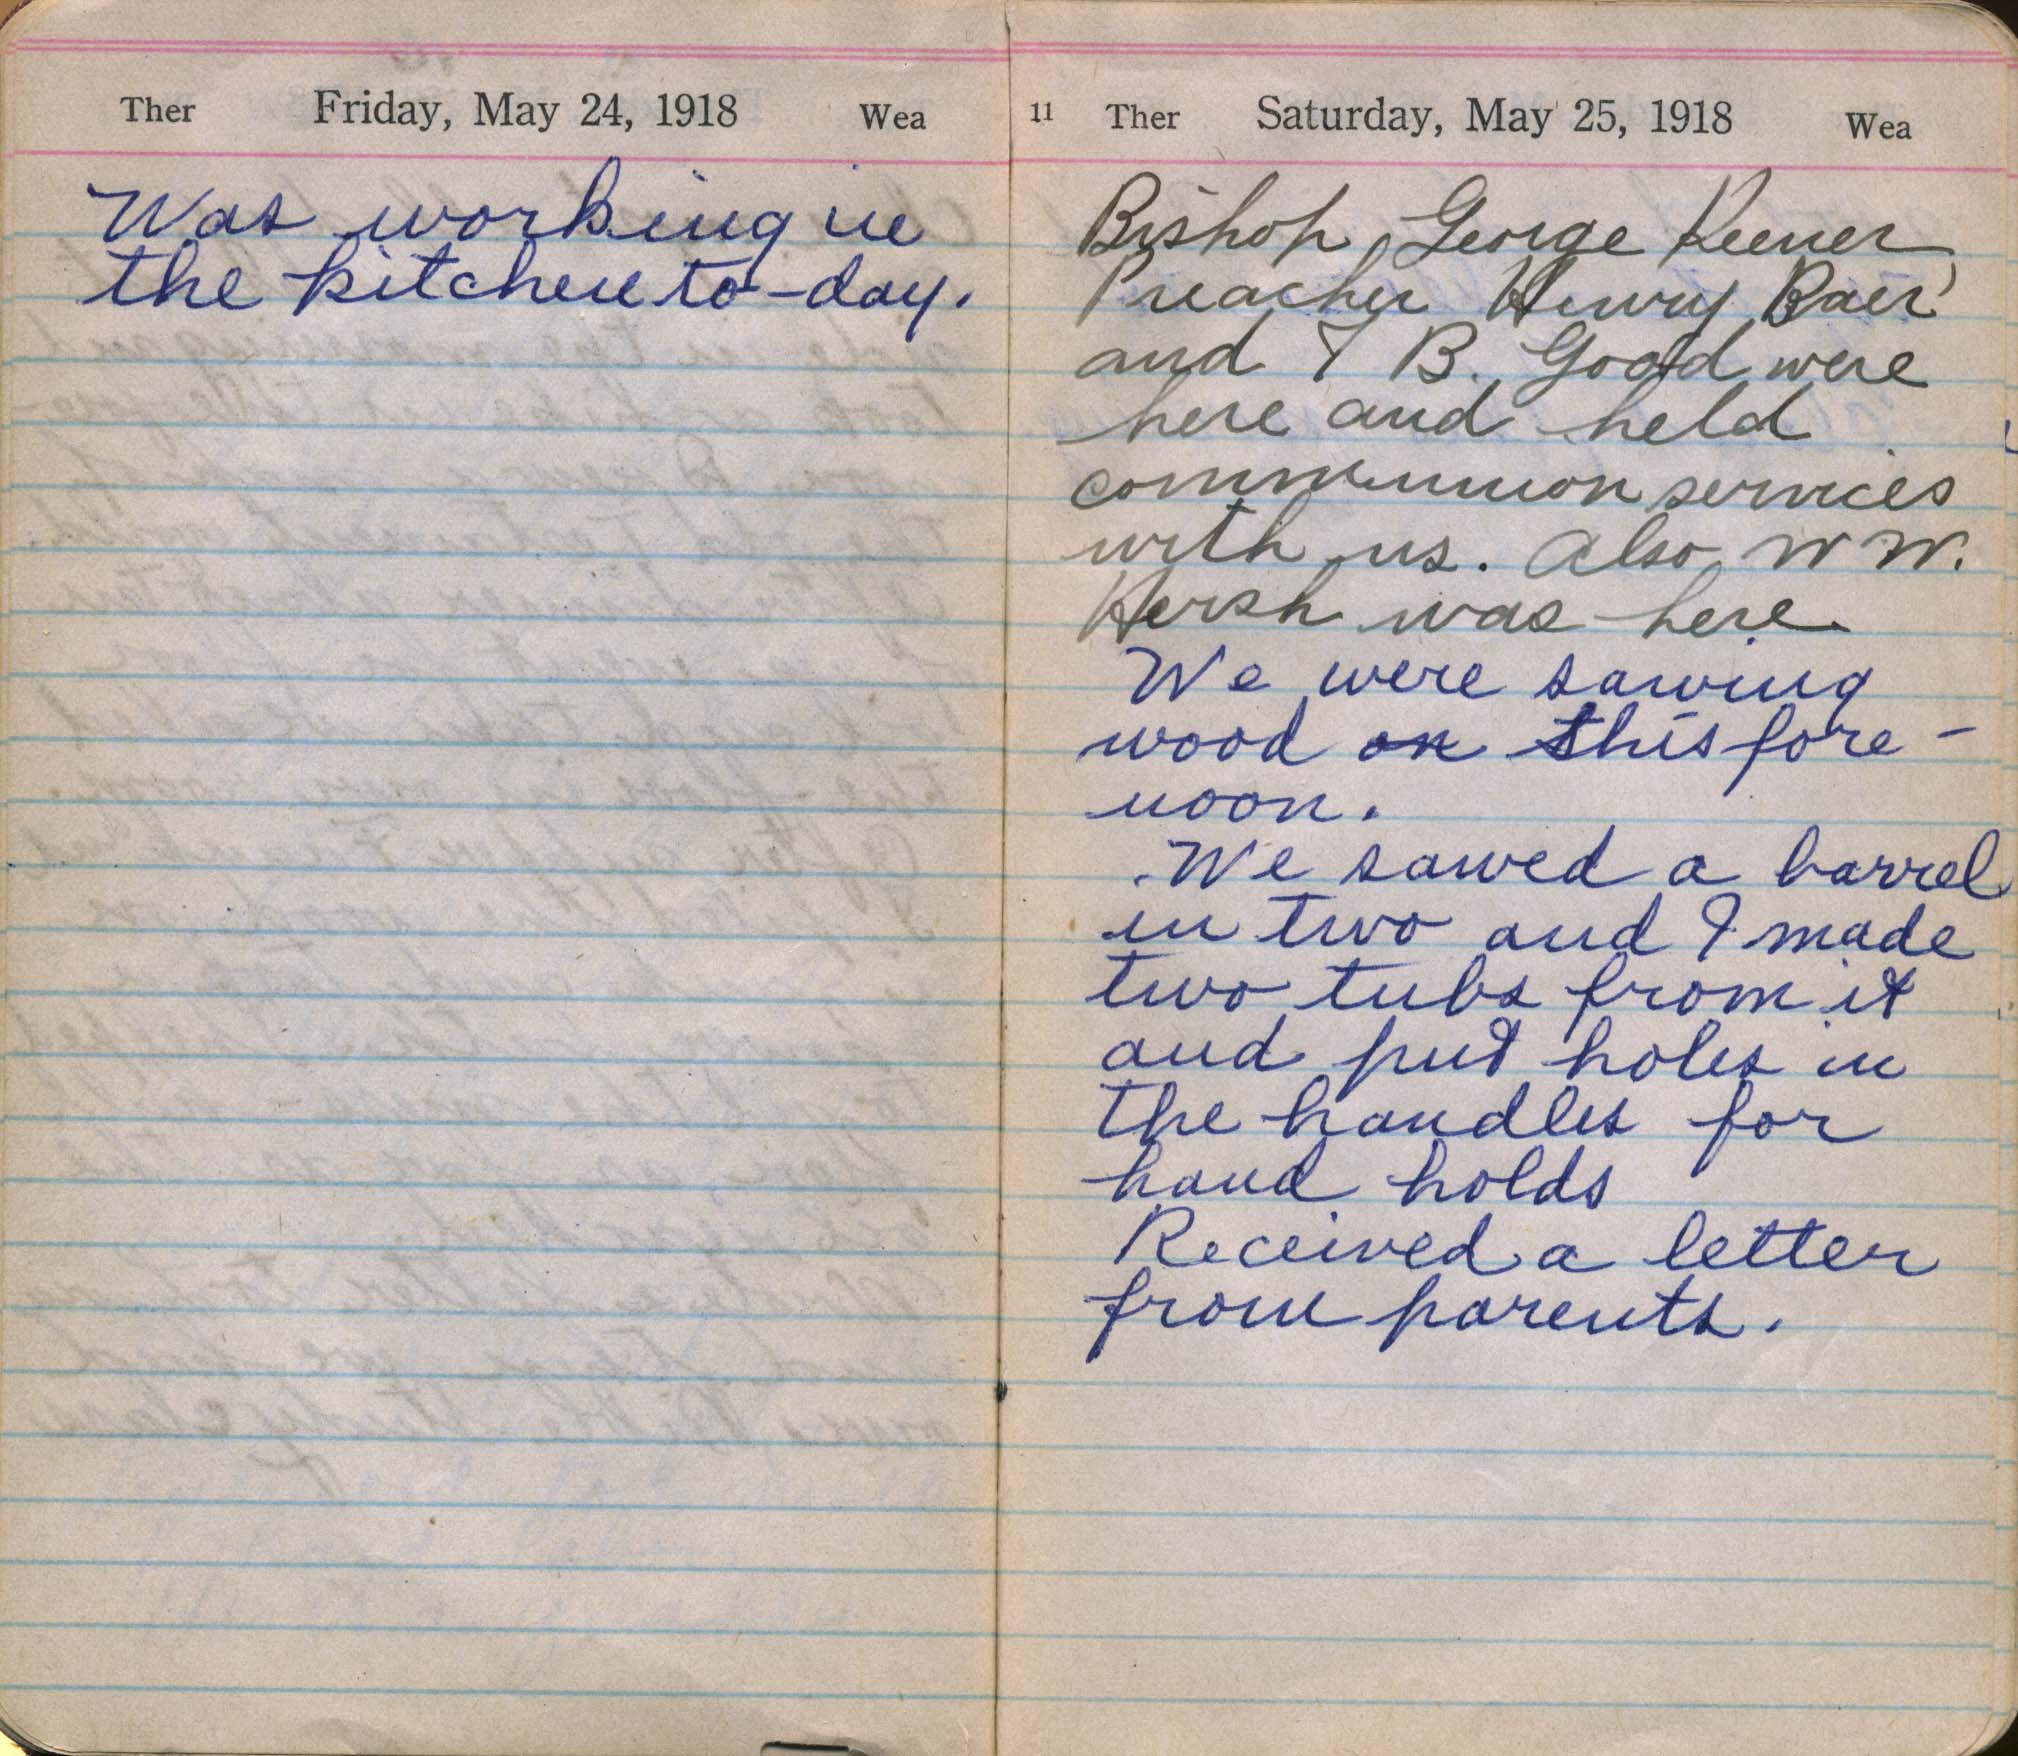 Ther Friday, May 24, 1918 Wea
Was working in
the kitchen to-day.
11 Ther Saturday, May 25, 1918 Wea
Bishop George Keener,
Preacher Henry Baer
and B. Good were
here and held
communion services
with us. Also W W.
Hersh was here.
We were sawing
wood on this fore-
noon.
We sawed a barrel
in two and I made
two tubs from it
and put holes in
the handles for
hand holds
Received a letter
from parents.